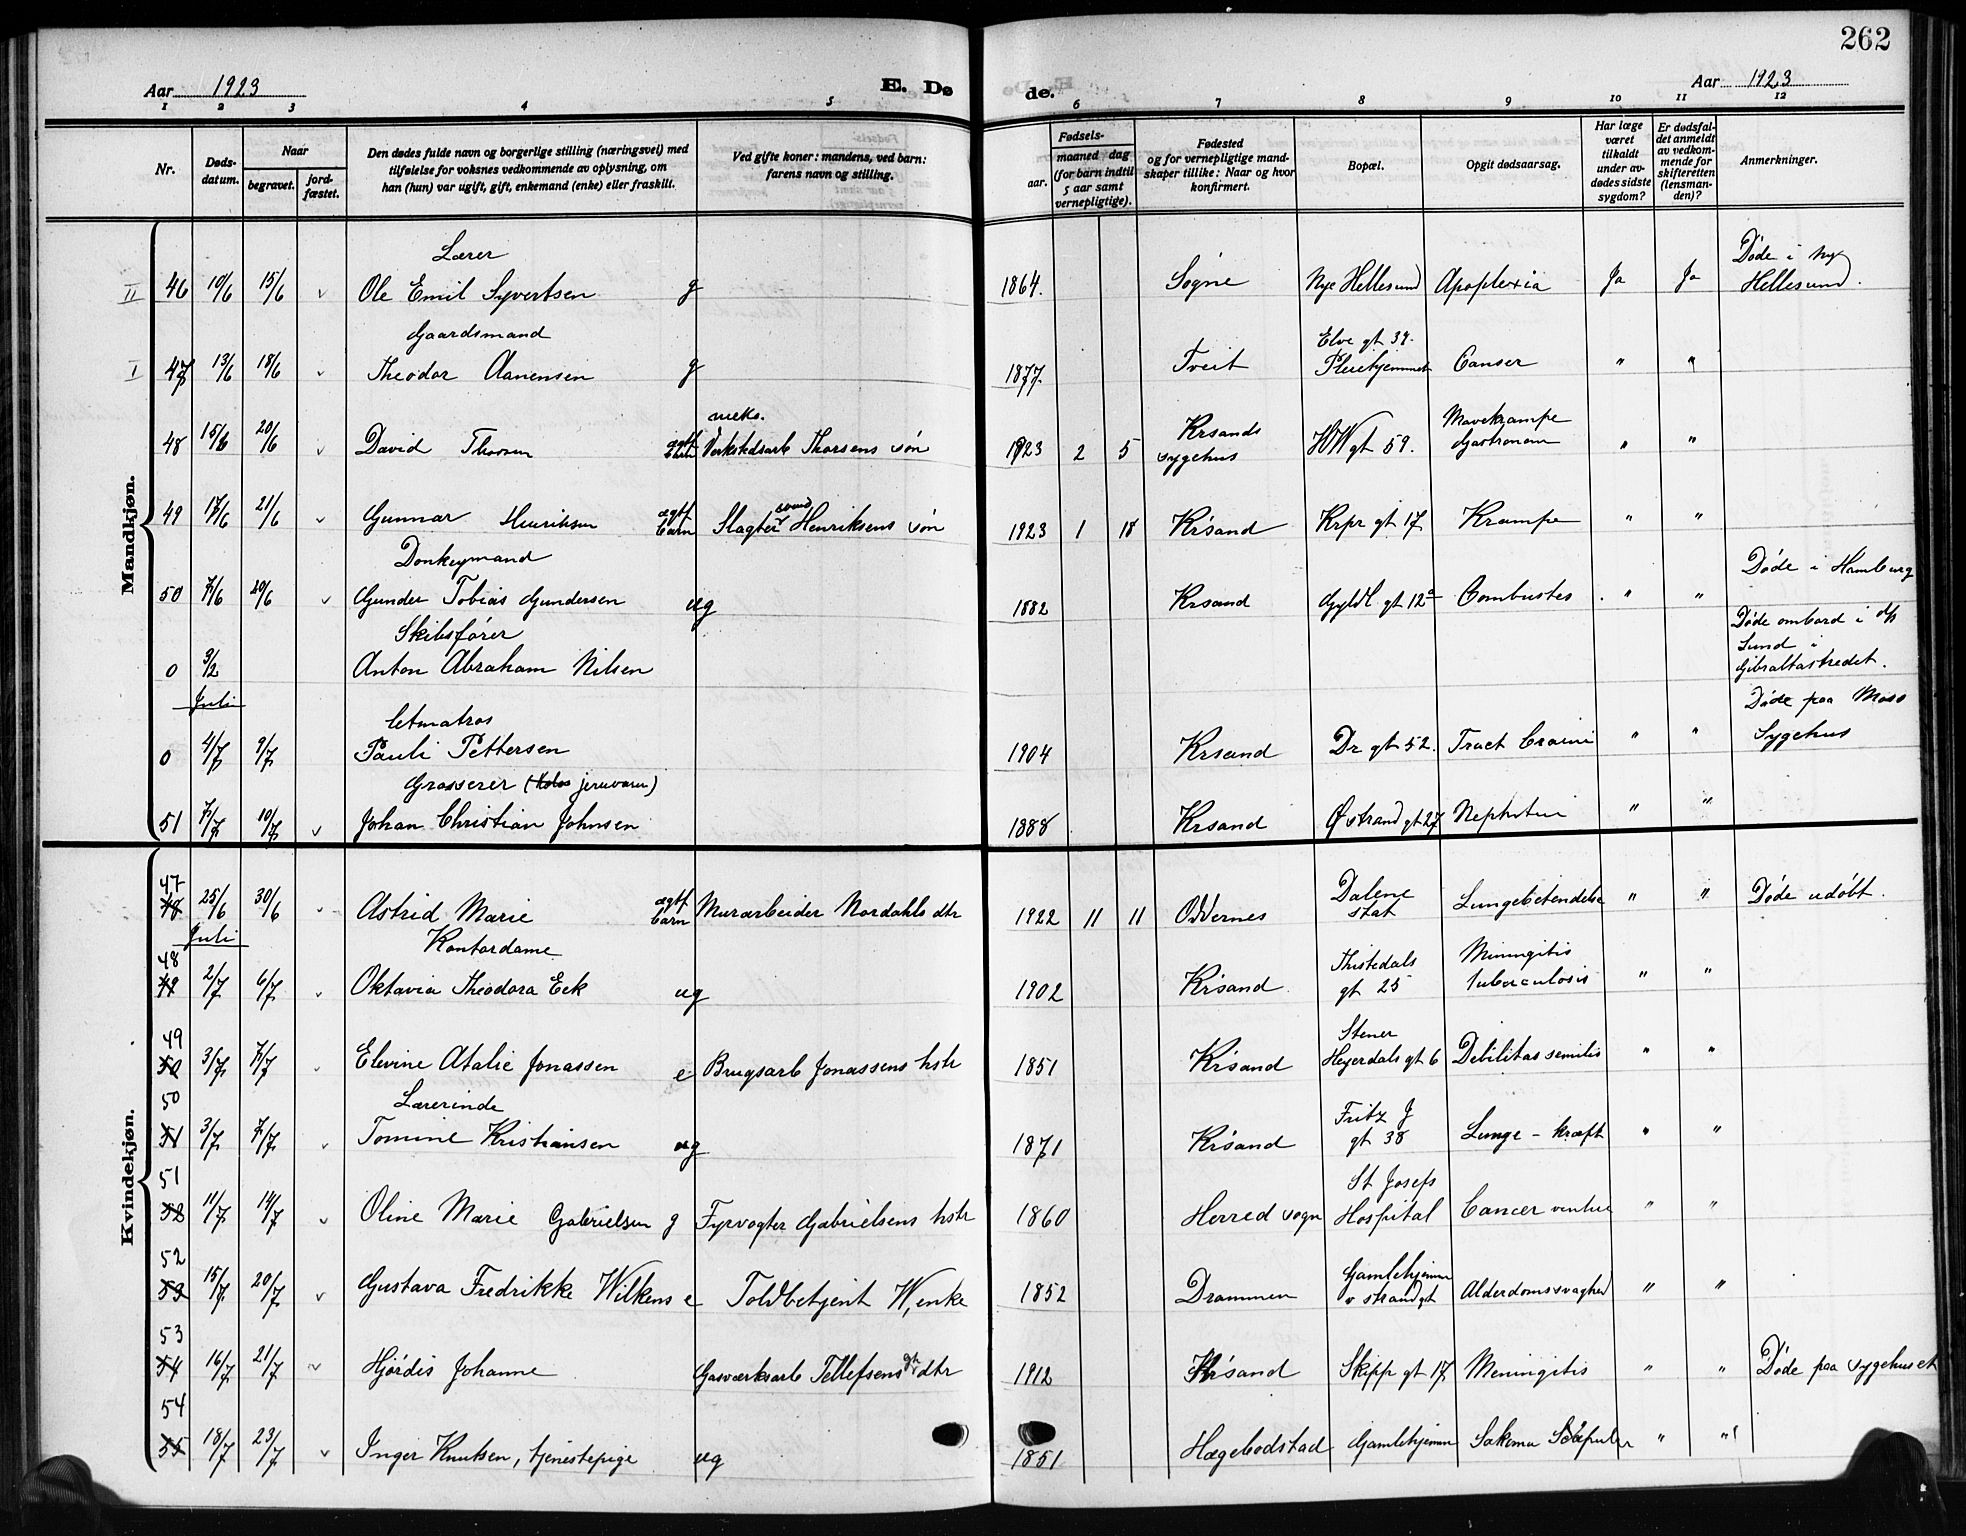 262
Aar 1923 E. Døde. Aar 1923
1 2 3 4 5 6 7 8 9 10 11 12
Nr. Dødsdatum. Naar begravet. jordfæstet. Den dødes fulde navn og borgerlige stilling (næringsvei) med tilføielse for voksnes vedkommende av oplysning, om han (hun) var ugift, gift, enkemand (enke) eller fraskilt. Ved gifte koner: mandens, ved barn: farens navn og stilling. Fødsels- aar. maaned dag (for barn indtil 5 aar samt vernepligtige). Fødested og for vernepligtige mandskaper tillike: Naar og hvor konfirmert. Bopæl. Opgit dødsaarsag. Har læge været tilkaldt under avdødes sidste sygdom? Er dødsfaldet anmeldt av vedkommende for skifteretten (lensmanden)? Anmerkninger.
Mandkjøn.
Lærer Døde i Ny
II 46 10/6 15/6 v Ole Emil Syvertsen g 1864. Søgne Nye Hellesund Apoplexia Ja Ja Hellesund.
Gaardsmand Elve gt 39.
I 47 13/6 18/6 v Theodor Aanensen g 1877. Tveit Pleiehjemmet Canser " "
meks. Krsands Mavekrampe
48 15/6 20/6 v David Thorsen ægtf barn Verkstedsarb Thorsens søn 1923 2 5 sygehus HW gt 59. " "
49 17/6 21/6 v Gunnar Henriksen ægtf barn Slagter svend Henriksens søn 1923 1 18 Kr'sand Krpr gt 17 Krampe " "
Donkeymand Døde i Hamburg
50 7/6 20/6 v Gunder Tobias Gundersen ug 1882 Krsand Gyldl gt 12a Combustes " "
Skibsfører Døde ombord i d/s
0 3/2 Anton Abraham Nilsen Lund i
Gibraltastredet.
Juli
letmatros Døde paa Moss
0 4/7 9/7 Pauli Pettersen 1904 Krsand Dr gt 52. Tract Cranii " " Sygehus
Grosserer (jernvarer)
51 7/7 10/7 v Johan Christian Johnsen 1888 Krsand Østrand gt 27 " "
Kvindekjøn.
47 Dalene
48 25/6 30/6 Astrid Marie ægtf barn Murarbeider Nordahls dtr 1922 11 11 Oddernes stat Lungebetendelse " " Døde udøbt.
Juli
Kontordame
48 Thistedals Miningitis
49 2/7 6/7 v Oktavia Theodora Eek ug 1902 Kr'sand gt 25 tuberculosis " "
49 Stener
50 3/7 7/7 Elevine Atalie Jonassen e Brugsarb Jonassens hstr 1851 Kr'sand Heyerdals gt 6 Debilitas semilis " "
50 Lærerinde Fritz J
51 3/7 7/7 v Tomine Kristiansen ug 1871 Kr'sand gt 38 Lunge - kræft " "
51 St Josefs
52 11/7 14/7 v Oline Marie Gabrielsen g Fyrvogter Gabrielsens hstr 1860 Herred sogn Hospital Cancer " "
52 Gamlehjem
53 15/7 20/7 v Gustava Fredrikke Wilkens e Toldbetjent W, enke 1852 Drammen v strandgt Alderdomssvaghed " "
53
54 16/7 21/7 v Hjørdis Johanne Gasværksarb Tellefsens gt dtr 1912 Kr'sand Skipp gt 17 Meningitis " " Døde paa sygehuset
54
55 18/7 23/7 v Inger Knutsen, tjenestepige ug 1851 Hægebodstad Gamlehjem " "